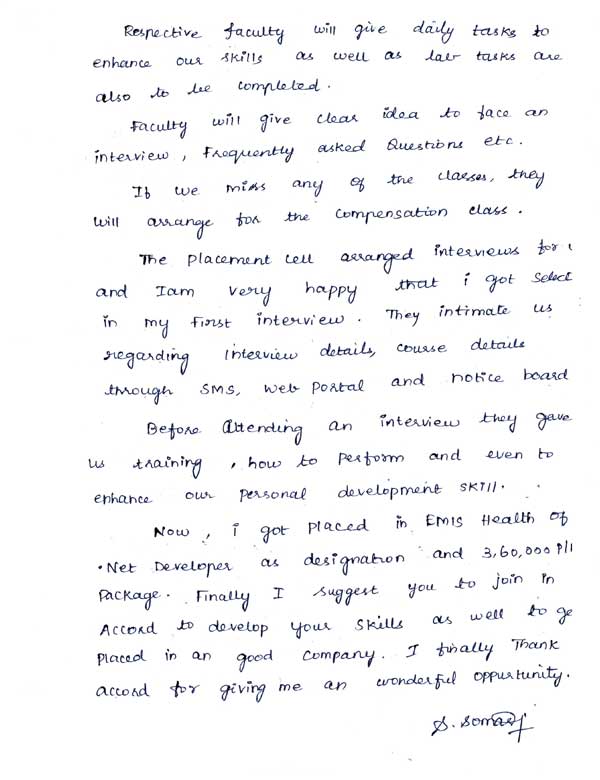 Respective faculty will give daily tasks to
enhance our skills as well as lab tasks are
also to be completed.
Faculty will give clear idea to face an
interview, Frequently asked Questions etc.
If we miss any of the classes, they
will arrange for the compensation class.
The Placement cell arranged interviews for
and Iam very happy that i got select
in my first interview. They intimate us
regarding interview details, course details
through SMS, web portal and notice board
Before Attending an interview they gave
us training, how to perform and even to
enhance our personal development skill.
Now, i got placed in EMIS Health of
.Net Developer as designation and 3,60,000 P/
Package. Finally I suggest you to join in
Accord to develop your skills as well to ge
Placed in an good company. I finally Thank
accord for giving me an wonderful oppurtunity.